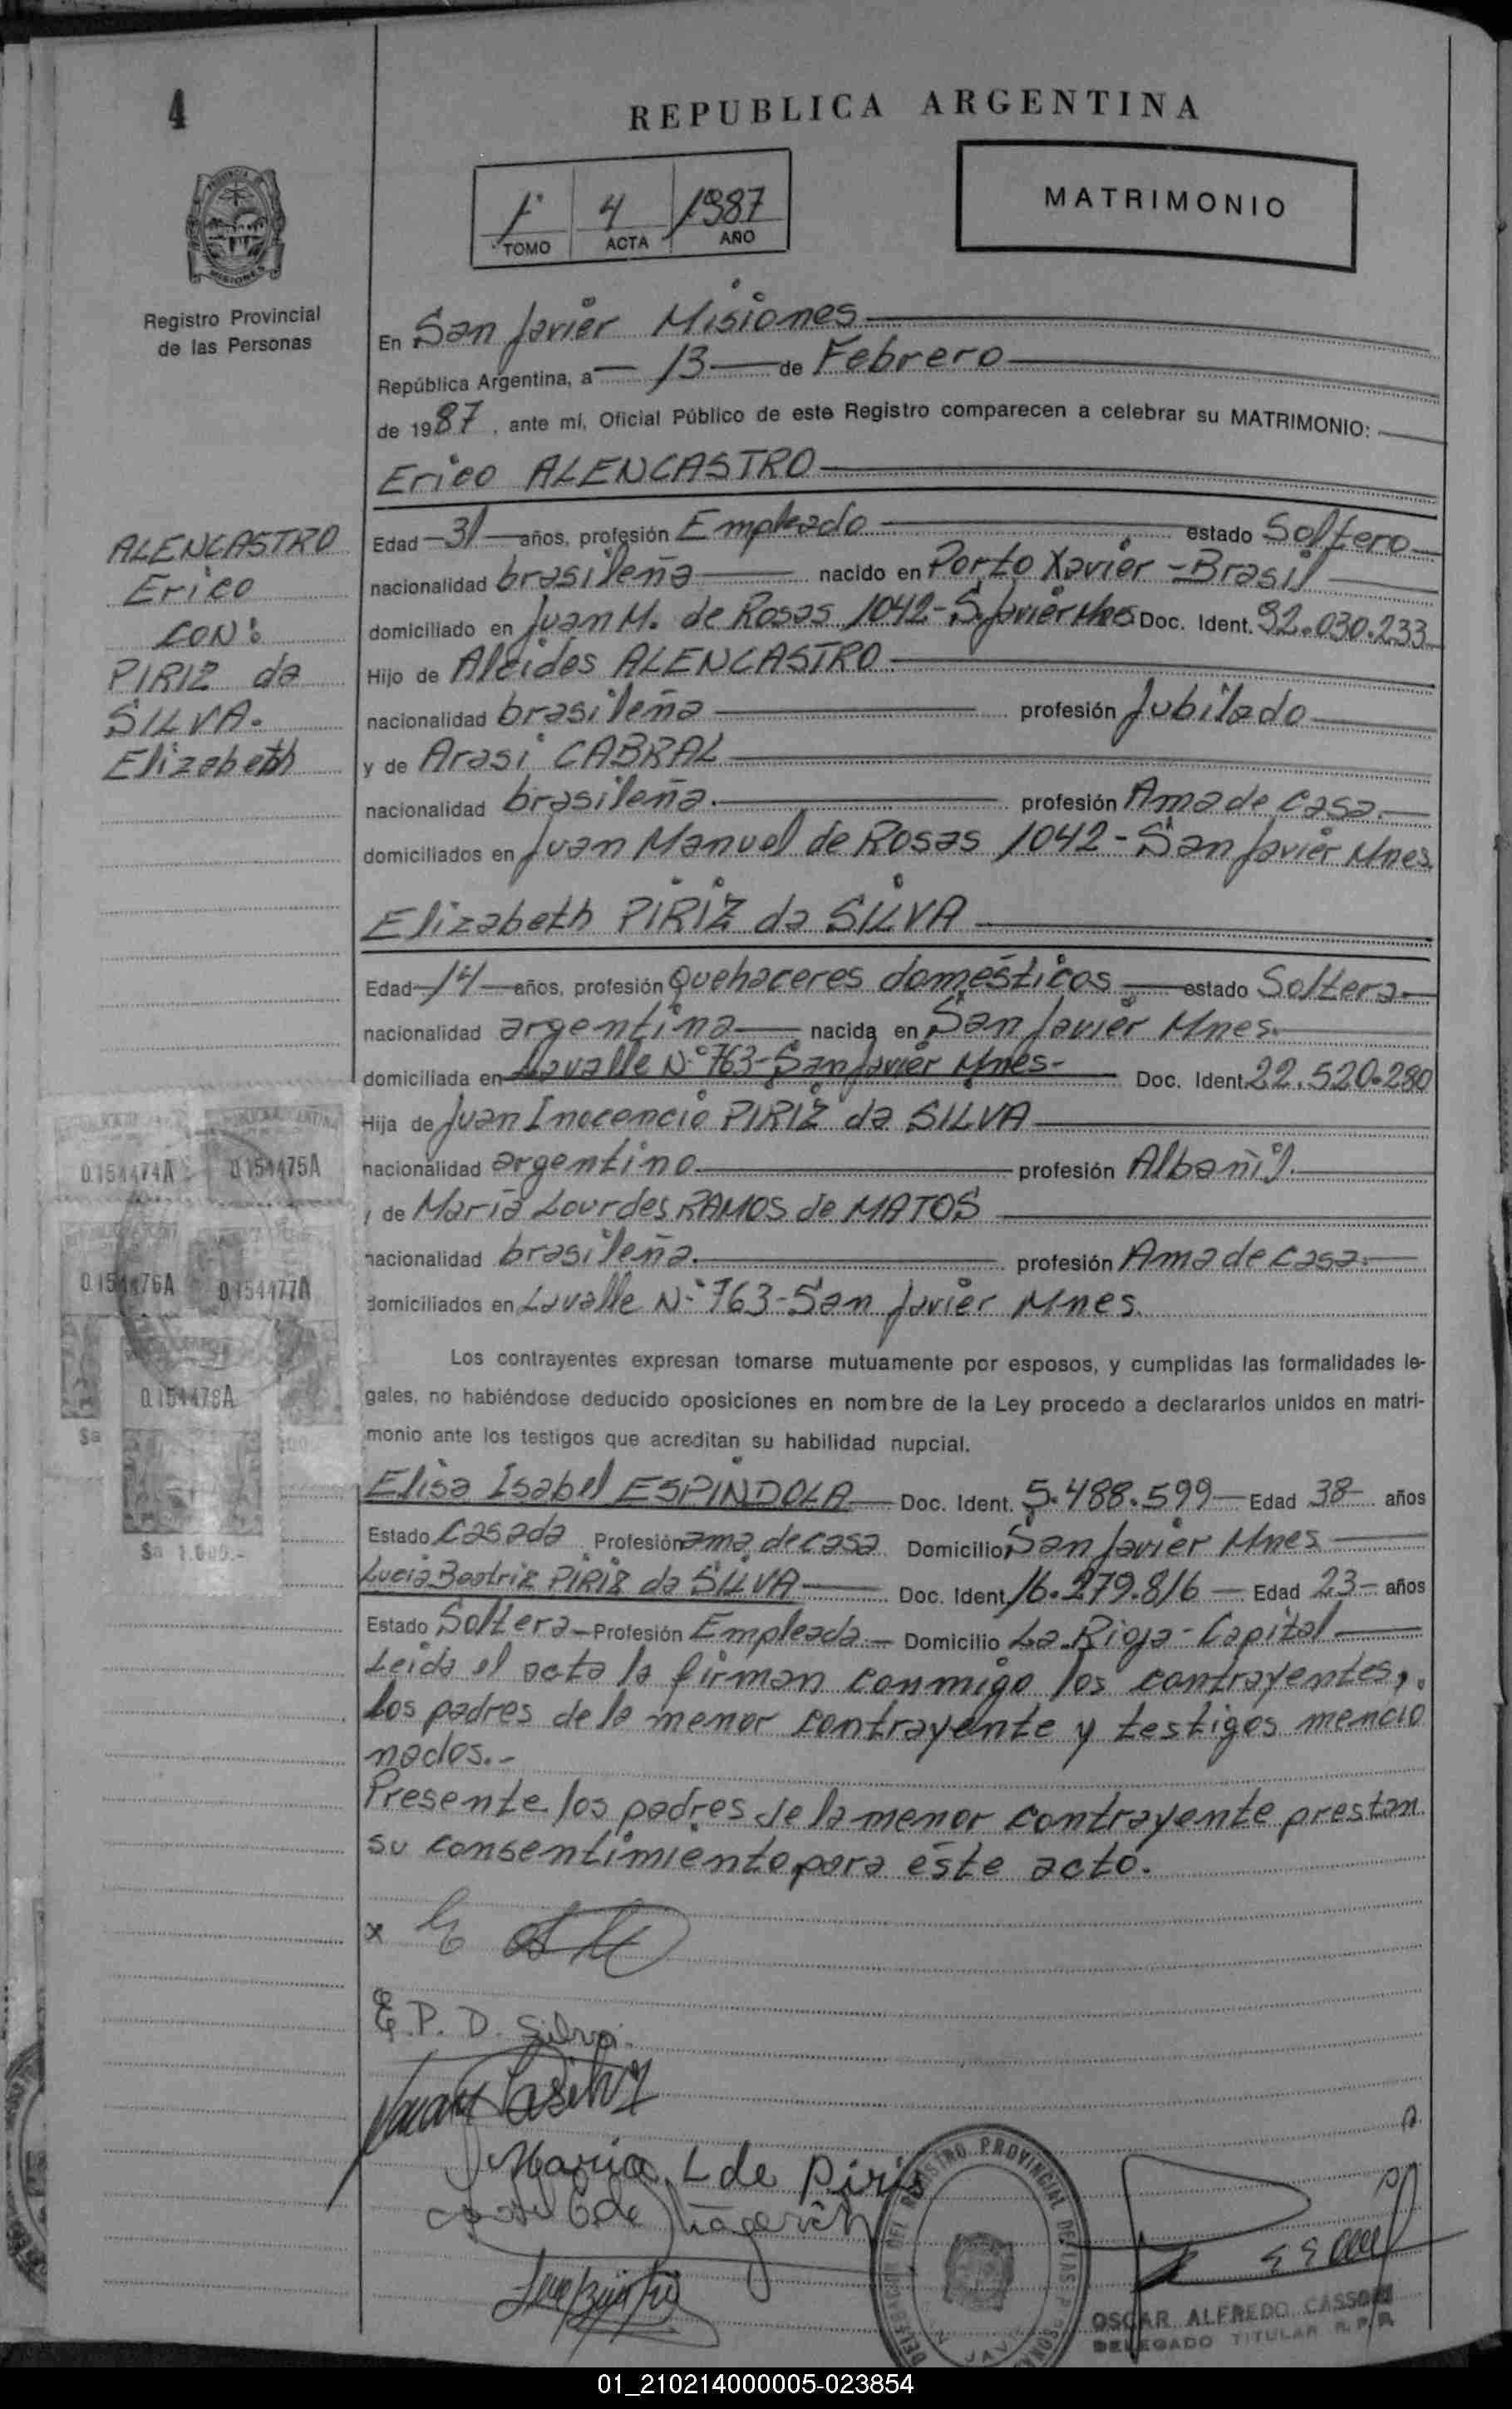 4
REPUBLICA ARGENTINA
1º 4 1987
TOMO ACTA AÑO
MATRIMONIO
PROVINCIA DE
MISIONES
Registro Provincial
de las Personas
En San Javier Misiones
República Argentina, a 13 de Febrero
de 1987, ante mí, Oficial Público de este Registro comparecen a celebrar su MATRIMONIO:
Erico ALENCASTRO
ALENCASTRO
Erico
CON:
PIRIZ da
SILVA.
Elizabeth
Edad 31 años, profesión Empleado estado Soltero
nacionalidad brasileña nacido en Porto Xavier - Brasil
domiciliado en Juan M. de Rosas 1042- S. Javier Mnes Doc. Ident. 92.030.233
Hijo de Alcides ALENCASTRO
nacionalidad brasileña profesión Jubilado
y de Arasi CABRAL
nacionalidad brasileña. profesión Ama de casa.
domiciliados en Juan Manuel de Rosas 1042 - San Javier Mnes.
Elizabeth PIRIZ da SILVA
Edad 14 años, profesión Quehaceres domésticos estado Soltera
nacionalidad argentina nacida en San Javier Mnes.
domiciliada en Lavalle Nº 763- San Javier Mnes- Doc. Ident. 22.520.280
Hija de Juan Inocencio PIRIZ da SILVA
nacionalidad argentino profesión Albañil.
y de María Lourdes RAMOS de MATOS
nacionalidad brasileña. profesión Ama de casa.
domiciliados en Lavalle Nº 763- San Javier Mnes.
0.154474A 0.154475A
0.154476A 0.154477A
0.154478A
$a
$a 1.000.-
Los contrayentes expresan tomarse mutuamente por esposos, y cumplidas las formalidades le-
gales, no habiéndose deducido oposiciones en nombre de la Ley procedo a declararlos unidos en matri-
monio ante los testigos que acreditan su habilidad nupcial.
Elisa Isabel ESPINDOLA Doc. Ident. 5.488.599 Edad 38 años
Estado Casada Profesión ama de casa Domicilio San Javier Mnes
Lucia Beatriz PIRIZ da SILVA Doc. Ident. 16.279.816 Edad 23 años
Estado Soltera Profesión Empleada Domicilio La Rioja - Capital
Leida el acta la firman conmigo los contrayentes,
los padres de la menor contrayente y testigos mencio
nados.-
Presente los padres de la menor contrayente prestan
su consentimiento para éste acto.
x
E. P. D. Silva
Maria L de Piris
REGISTRO PROVINCIAL DE LAS PERSONAS
OSCAR ALFREDO CASSONI
DELEGADO TITULAR R. P. P.
01_210214000005-023854